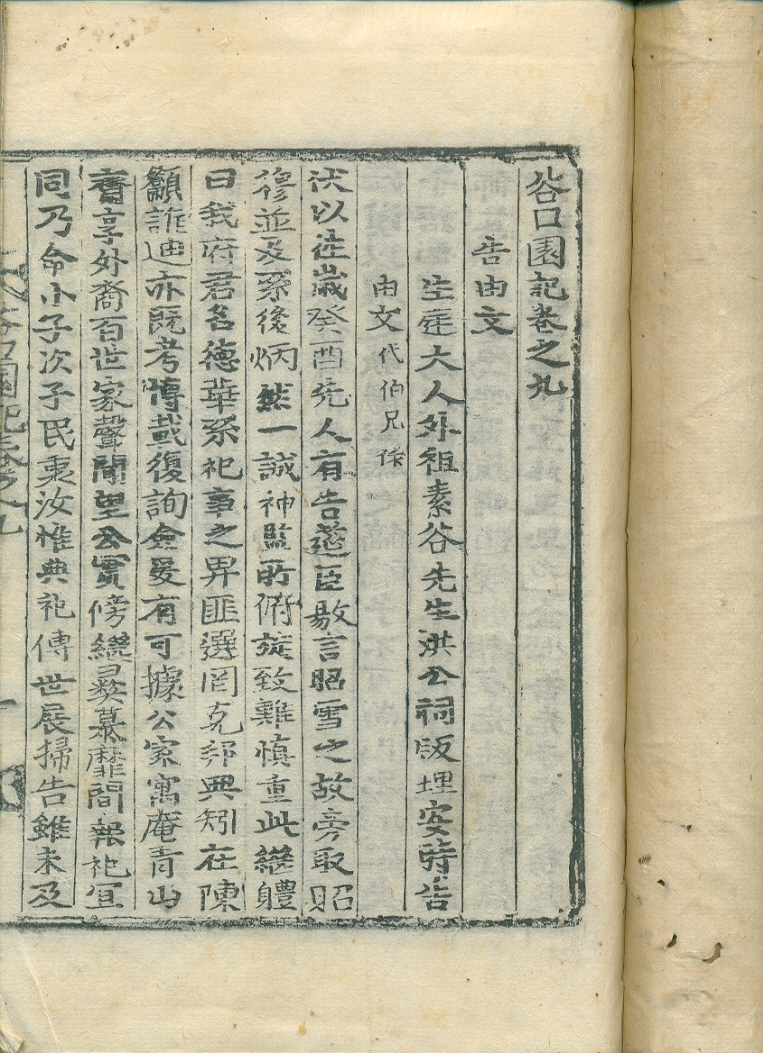 谷口園記卷之九
告由文
生庭大人外祖素谷先生洪公祠版埋安時告
由文代伯兄作
伏以往歲癸酉先人有告藎臣敭言昭雪之故旁取昭
修並及系後炳然一誠神監所俯旋致難慎重此繼體
曰我府君名德華系祀事之畀匪選罔克邦典矧在陳
籲誰迪亦旣考愽載復詢僉爰有可據公家寓庵青山
齋享外裔百世家聲聞望公實傍纘羹慕靡間報祀宜
同乃命小子次子民秉汝惟典祀傳世展掃告雖未及
谷口園記卷之九